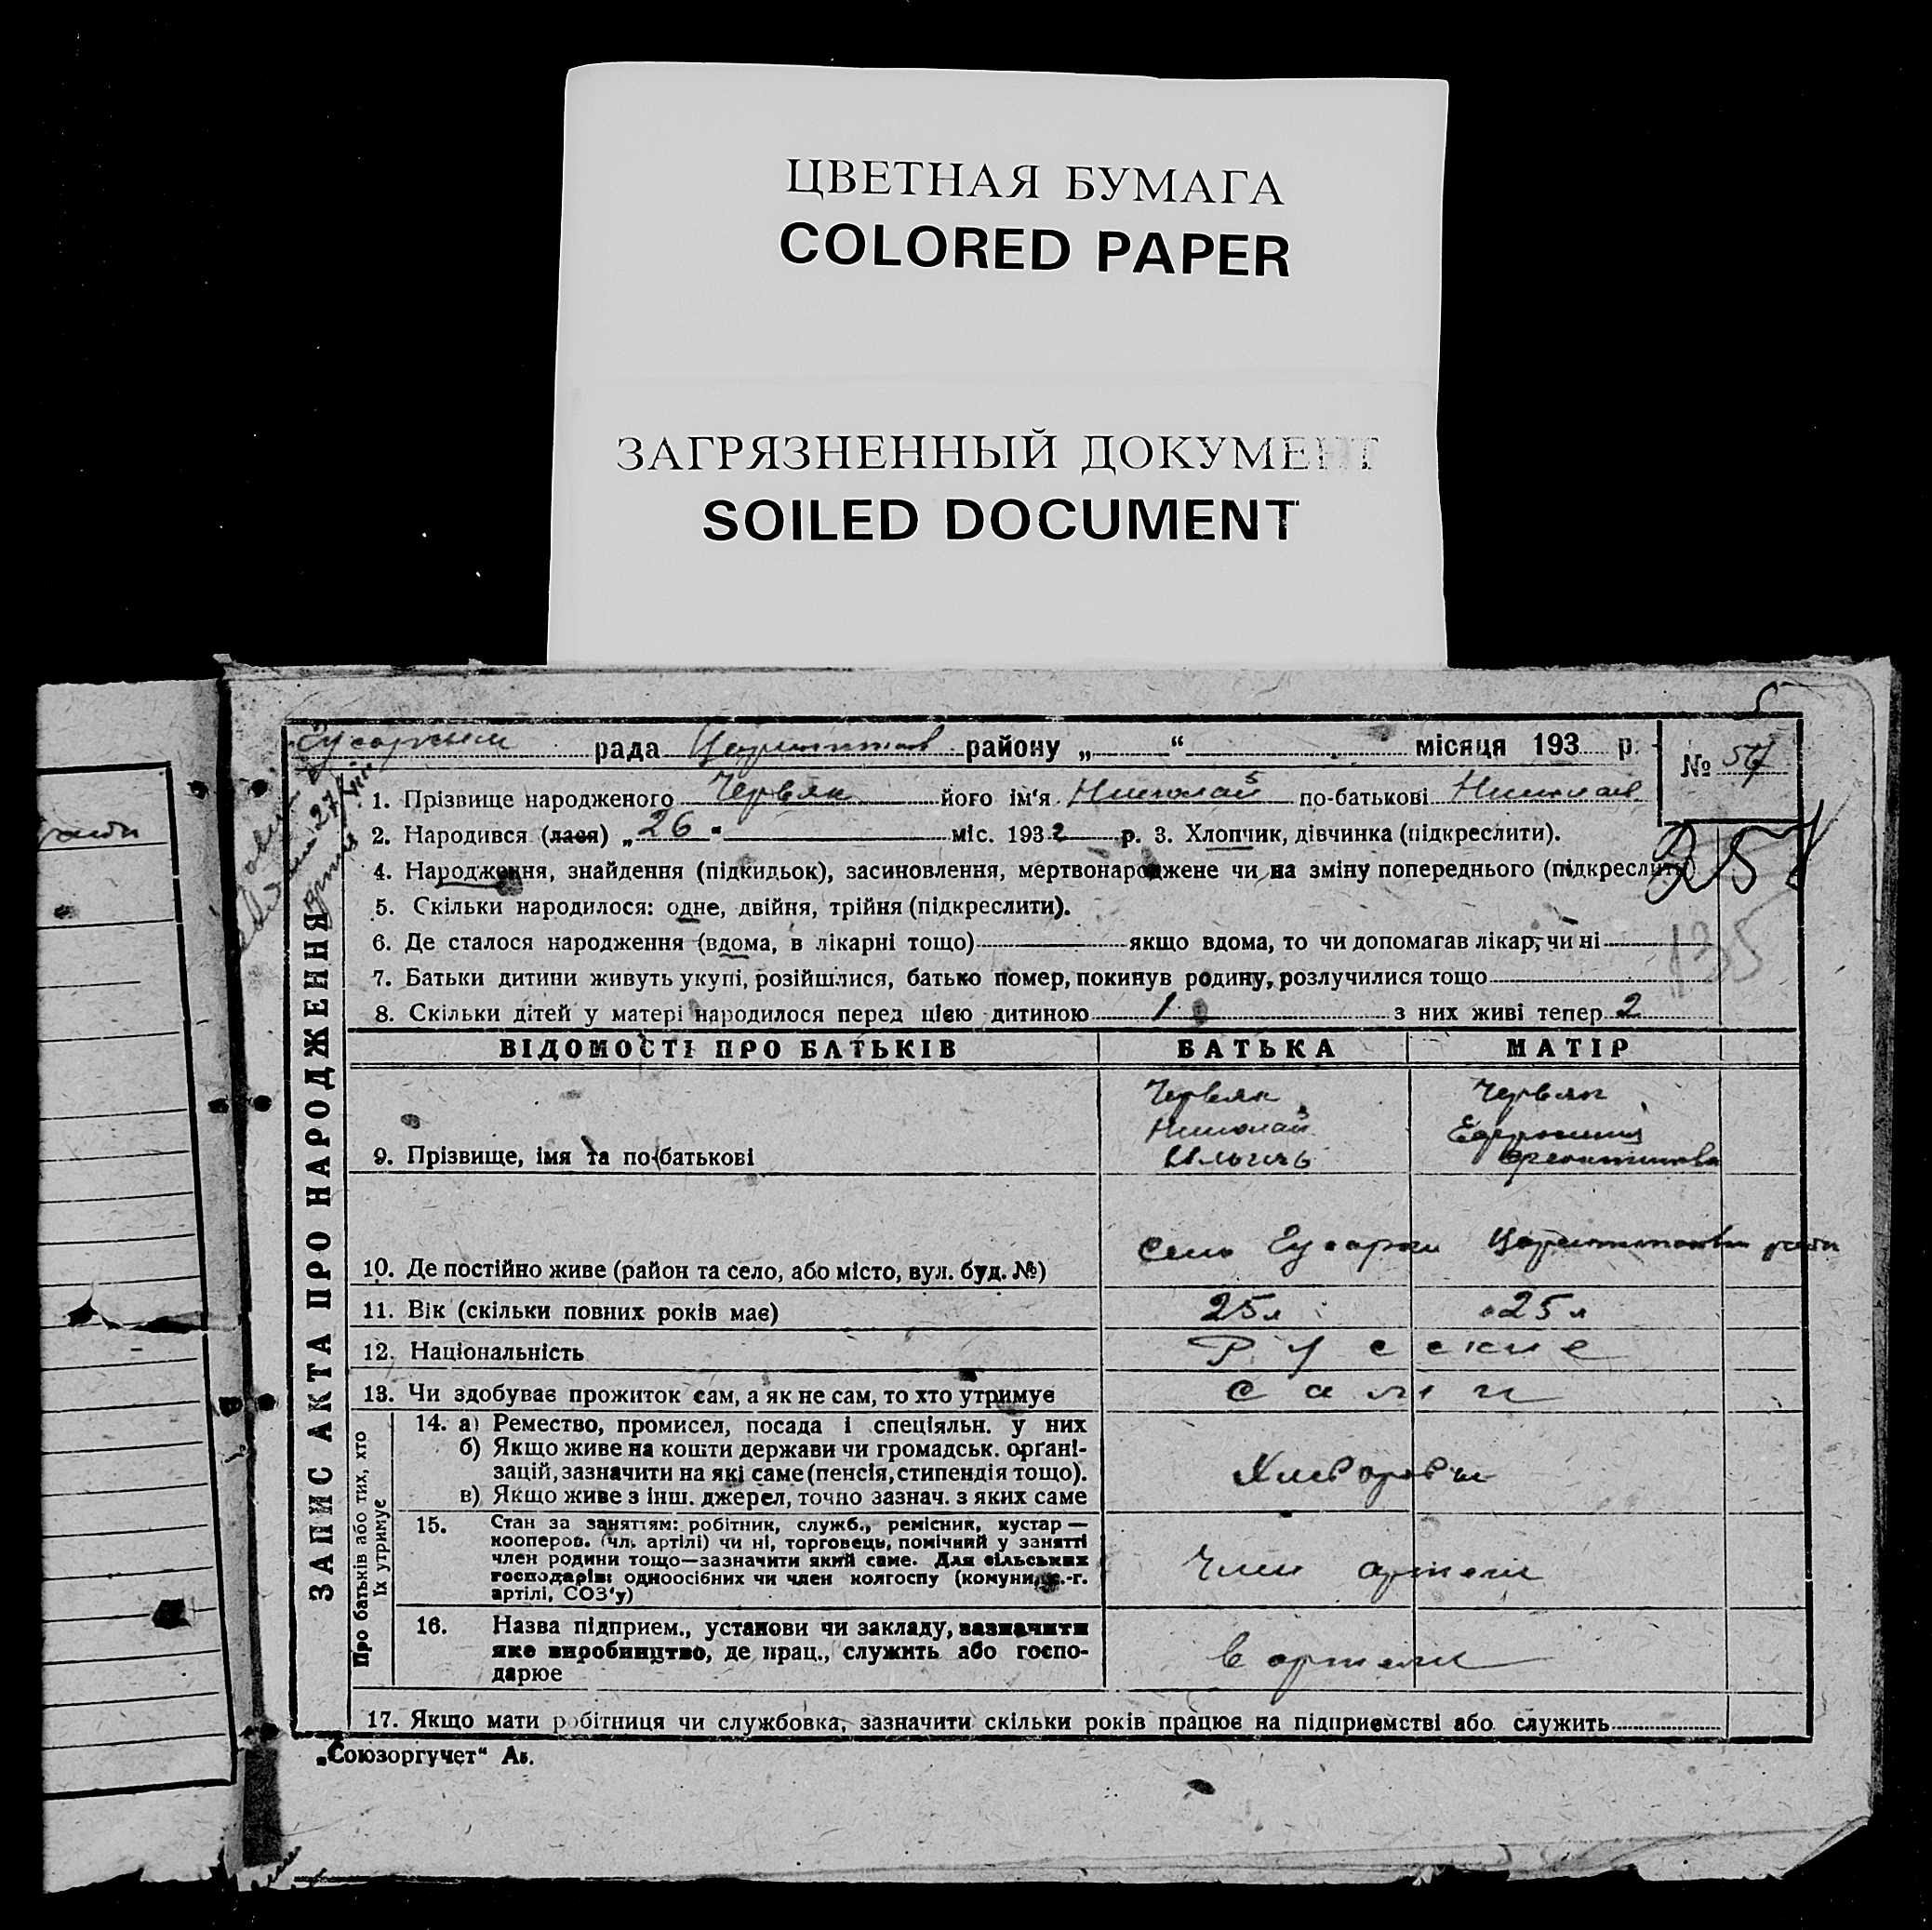 ЦВЕТНАЯ БУМАГА
COLORED PAPER
ЗАГРЯЗНЕННЫЙ ДОКУМЕНТ
SOILED DOCUMENT
рада району „ “ місяця 193 р.
№
1. Прізвище народженого Червяк його ім'я Николай по-батькові
2. Народився (лася) „ 26 " міс. 1932 р. 3. Хлопчик, дівчинка (підкреслити).
4. Народження, знайдення (підкидьок), засиновлення, мертвонароджене чи на зміну попереднього (підкреслити)
5. Скільки народилося: одне, двійня, трійня (підкреслити).
6. Де сталося народження (вдома, в лікарні тощо) якщо вдома, то чи допомагав лікар, чи ні
135
7. Батьки дитини живуть укупі, розійшлися, батько помер, покинув родину, розлучилися тощо
8. Скільки дітей у матері народилося перед цією дитиною 1 з них живі тепер 2
ВІДОМОСТІ ПРО БАТЬКІВ БАТЬКА МАТІР
Червяк Червяк
Николай
9. Прізвище, імя та по-батькові
село
10. Де постійно живе (район та село, або місто, вул. буд. №)
11. Вік (скільки повних років має) 25 л 25 л
12. Національність Русские
13. Чи здобуває прожиток сам, а як не сам, то хто утримує сами
14. а) Ремество, промисел, посада і спеціяльн. у них
б) Якщо живе на кошти держави чи громадськ. органі-
зацій, зазначити на які саме (пенсія, стипендія тощо).
в) Якщо живе з інш. джерел, точно зазнач. з яких саме
15. Стан за заняттям: робітник, служб., ремісник, кустар—
кооперов. (чл. артілі) чи ні, торговець, помічний у занятті
член родини тощо—зазначити який саме. Для сільських
господарів: одноосібних чи член колгоспу (комуни, с.-г.
артілі, СОЗ'у)
член артели
16. Назва підприєм., установи чи закладу, зазначити
яке виробництво, де прац., служить або госпо-
дарює
в артели
17. Якщо мати робітниця чи службовка, зазначити скільки років працює на підприємстві або служить
ЗАПИС АКТА ПРО НАРОДЖЕННЯ
Про батьків або тих, хто
їх утримує
„Союзоргучет“